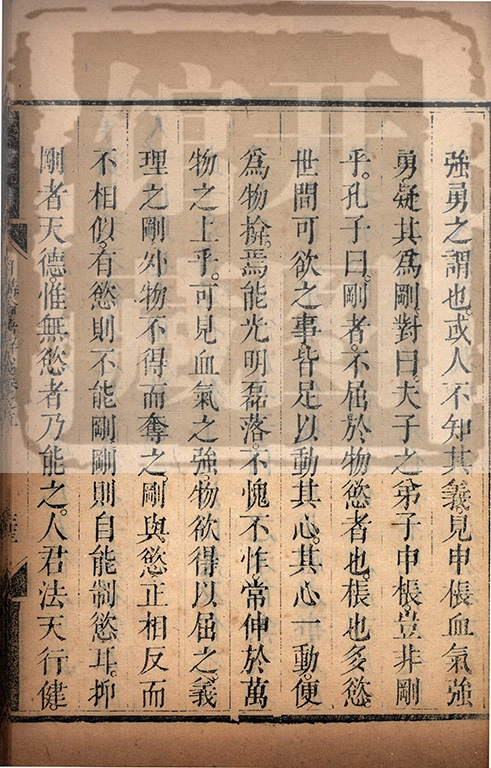 強勇之謂也。或人不知其義。見申棖血氣強
勇。疑其爲剛。對曰。夫子之弟子申棖。豈非剛
乎。孔子曰。剛者。不屈於物慾者也。棖也多慾。
世間可欲之事。皆足以動其心。其心一動。便
爲物揜。焉能光明磊落。不愧不怍。常伸於萬
物之上乎。可見血氣之強。物欲得以屈之。義
理之剛。外物不得而奪之。剛與慾。正相反而
不相似。有慾則不能剛。剛則自能制慾耳。抑
剛者天德。惟無慾者乃能之。人君法天行健